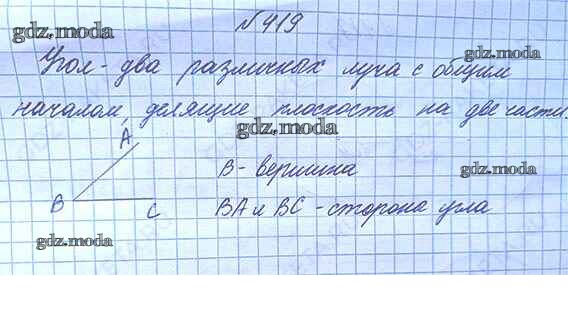 №419
gdz.moda
gdz.moda
Угол - два различных луча с общим
началом, делящие плоскость на две части.
gdz.moda
A
B - вершина
gdz.moda
B
C
BA и BC - сторона угла
gdz.moda
gdz.moda